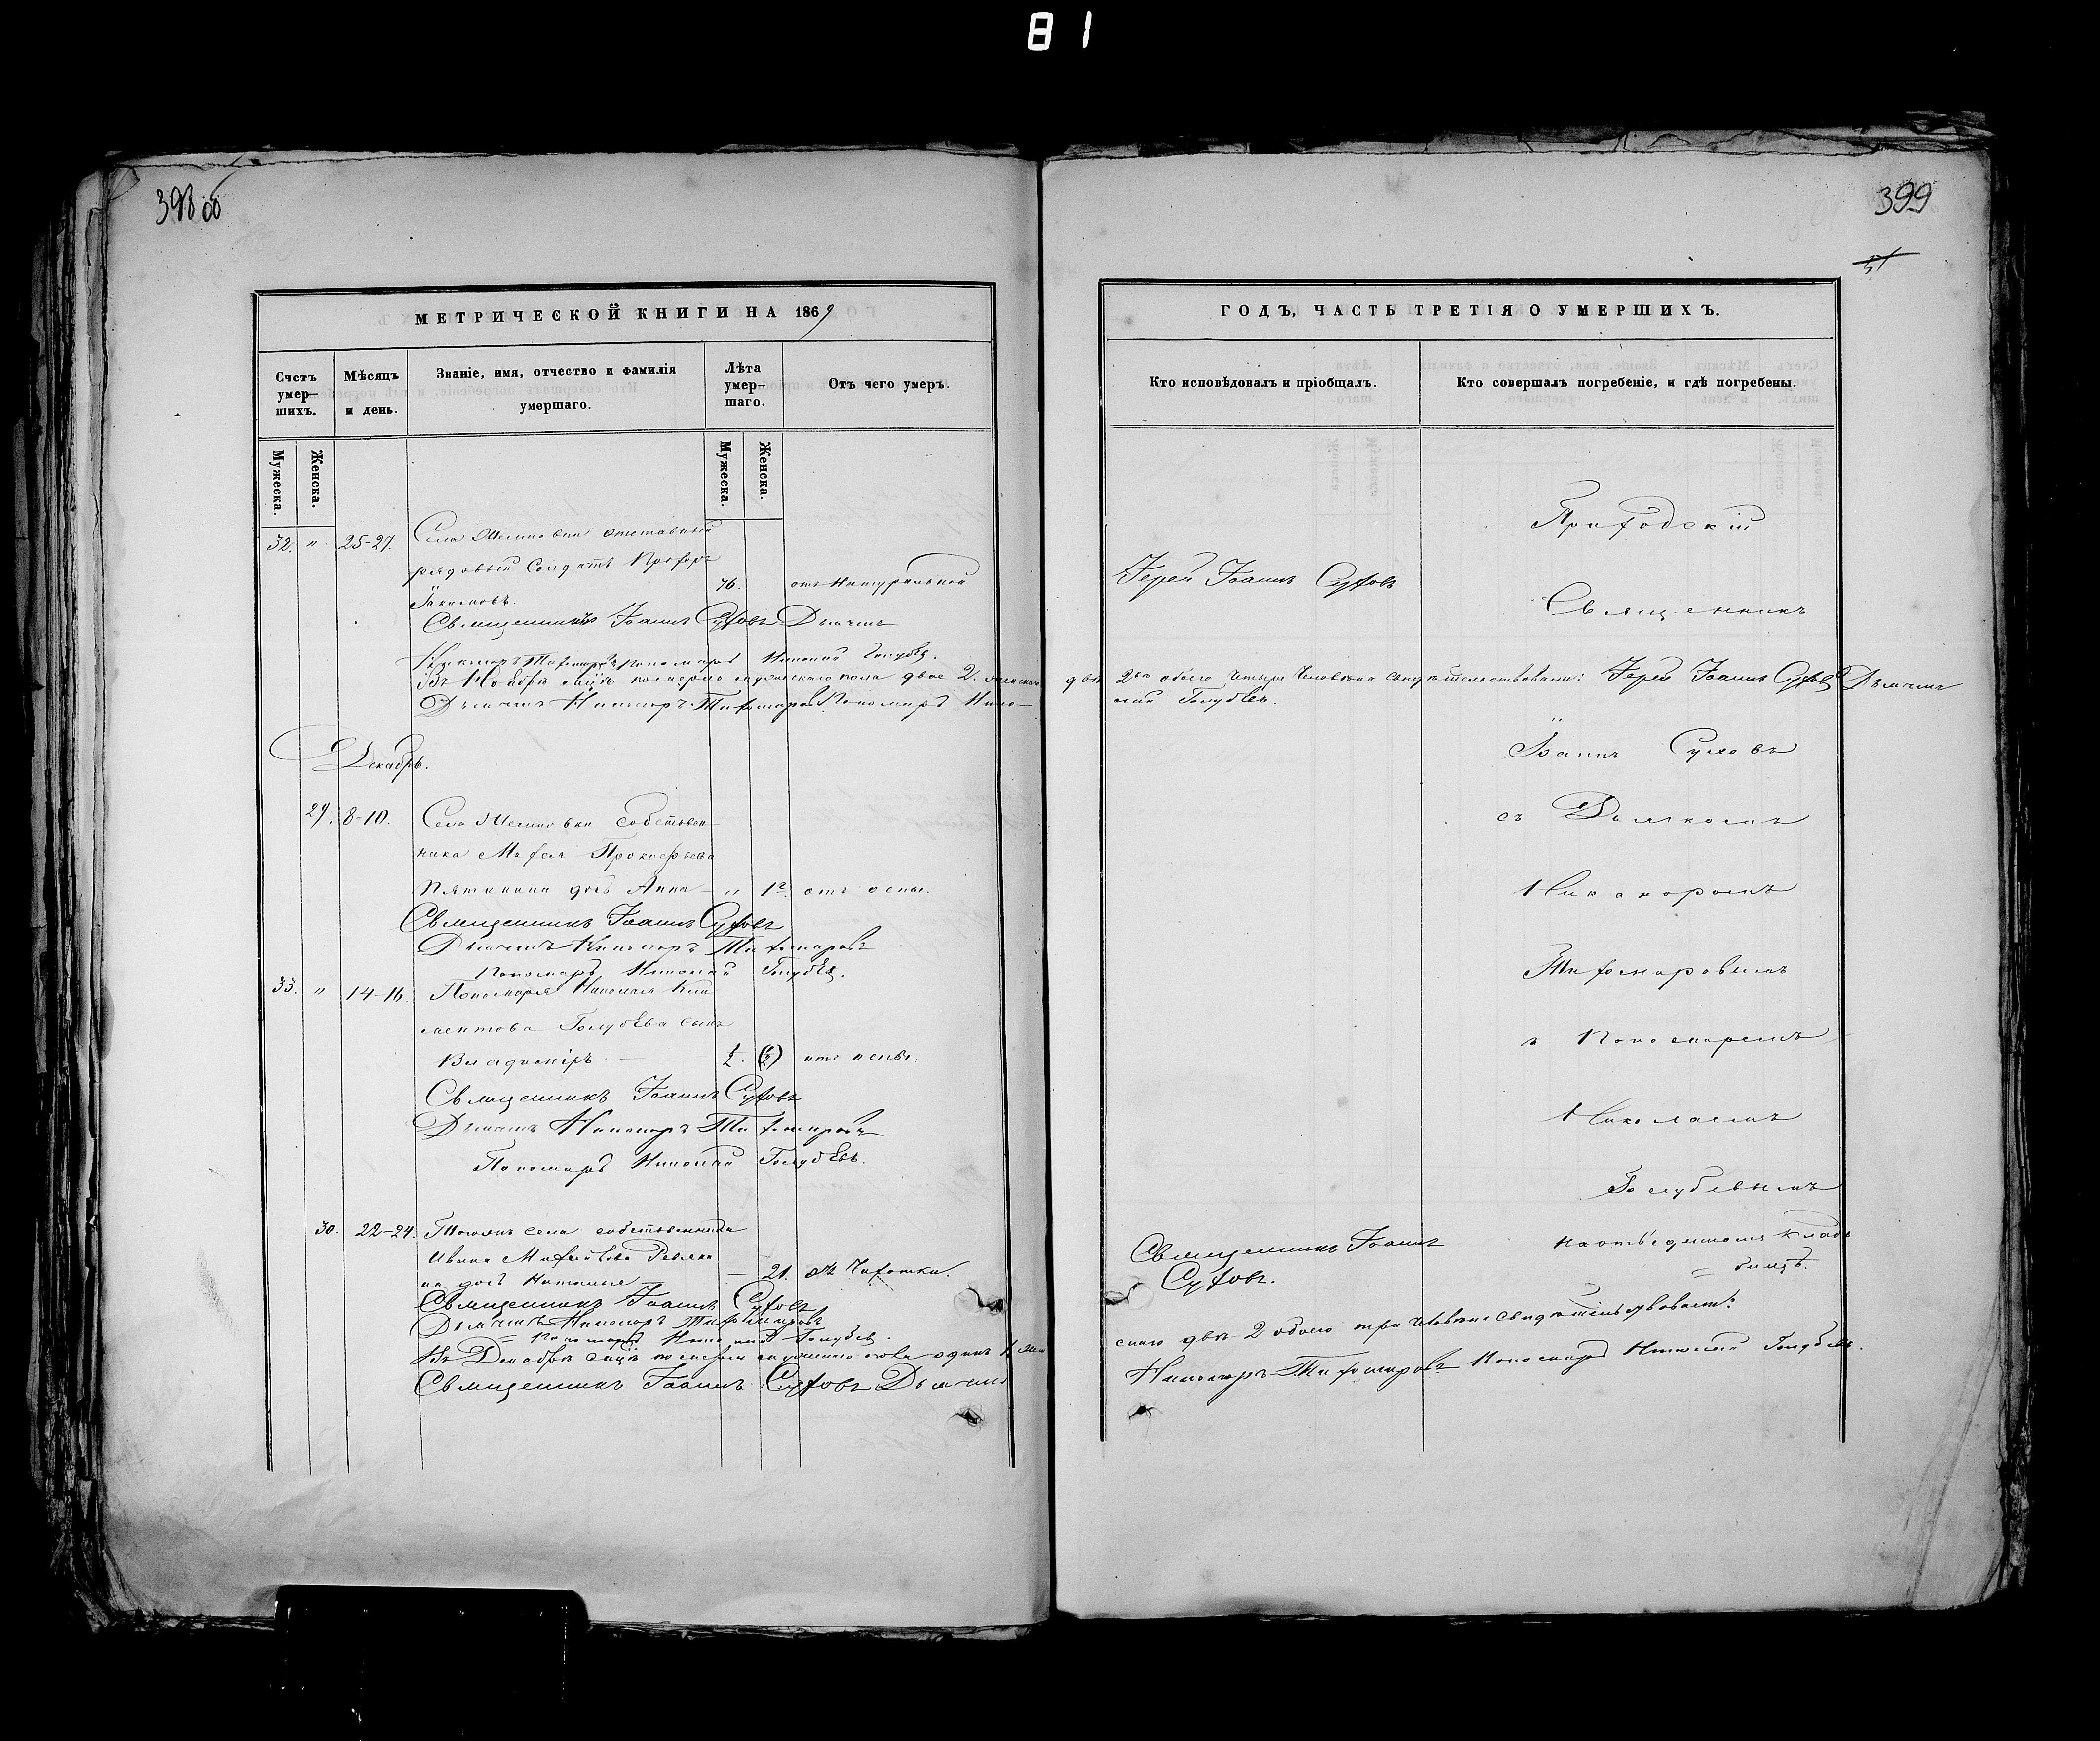 81
398 об
399
51
МЕТРИЧЕСКОЙ КНИГИ НА 1869
ГОДЪ, ЧАСТЬ ТРЕТІЯ О УМЕРШИХЪ.
Счетъ умер-шихъ.
Мѣсяцъ и день.
Званіе, имя, отчество и фамилія умершаго.
Лѣта умер-шаго.
Отъ чего умеръ.
Кто исповѣдовалъ и пріобщалъ.
Кто совершалъ погребеніе, и гдѣ погребены.
Мужеска.
Женска.
Мужеска.
Женска.
32. " 25-27. Села отставный
рядовый Солдатъ
Іакимовъ. 76. отъ Натуральной
Священникъ Іоаннъ Суховъ Дьячекъ
Никаноръ Тихомировъ Пономарь Николай Голубевъ.
Въ Ноябрѣ мцѣ померло мужескаго пола двое 2. женскаго
Дьячекъ Никаноръ Тихомировъ Пономарь Нико-
Декабрь.
29. 8-10. Села собствен-
ника Прокофьева
дочь Анна - " 12 отъ оспы.
Священникъ Іоаннъ Суховъ
Дьячекъ Никаноръ Тихомировъ
Пономарь Николай Голубевъ.
33. " 14-16. Пономаря Николая Кли
ментова Голубева сынъ
Владиміръ — отъ оспы.
Священникъ Іоаннъ Суховъ
Дьячекъ Никаноръ Тихомировъ
Пономарь Николай Голубевъ.
30. 22-24. Тогожъ села собственника
Ивана
на дочь Наталья — 21. отъ Чахотки.
Священникъ Іоаннъ Суховъ
Дьячекъ Никаноръ Тихомировъ
Пономарь Николай Голубевъ.
Въ Декабрѣ мцѣ померло мужескаго пола одинъ 1 жен
Священникъ Іоаннъ Суховъ Дьячекъ
Приходскій
Іерей Іоаннъ Суховъ
Священникъ
двѣ обоего четыре Человѣка свидѣтельствовали: Іерей Іоаннъ Суховъ Дьячекъ
лай Голубевъ.
Іоаннъ Суховъ
съ Дьячкомъ
Никаноромъ
Тихомировымъ
и Пономаремъ
Николаемъ
Голубевымъ
на отведенномъ клад
бищѣ.
Священникъ Іоаннъ
Суховъ.
скаго двѣ 2 обоего три человѣка свидѣтельствовали:
Никаноръ Тихомировъ Пономарь Николай Голубевъ.